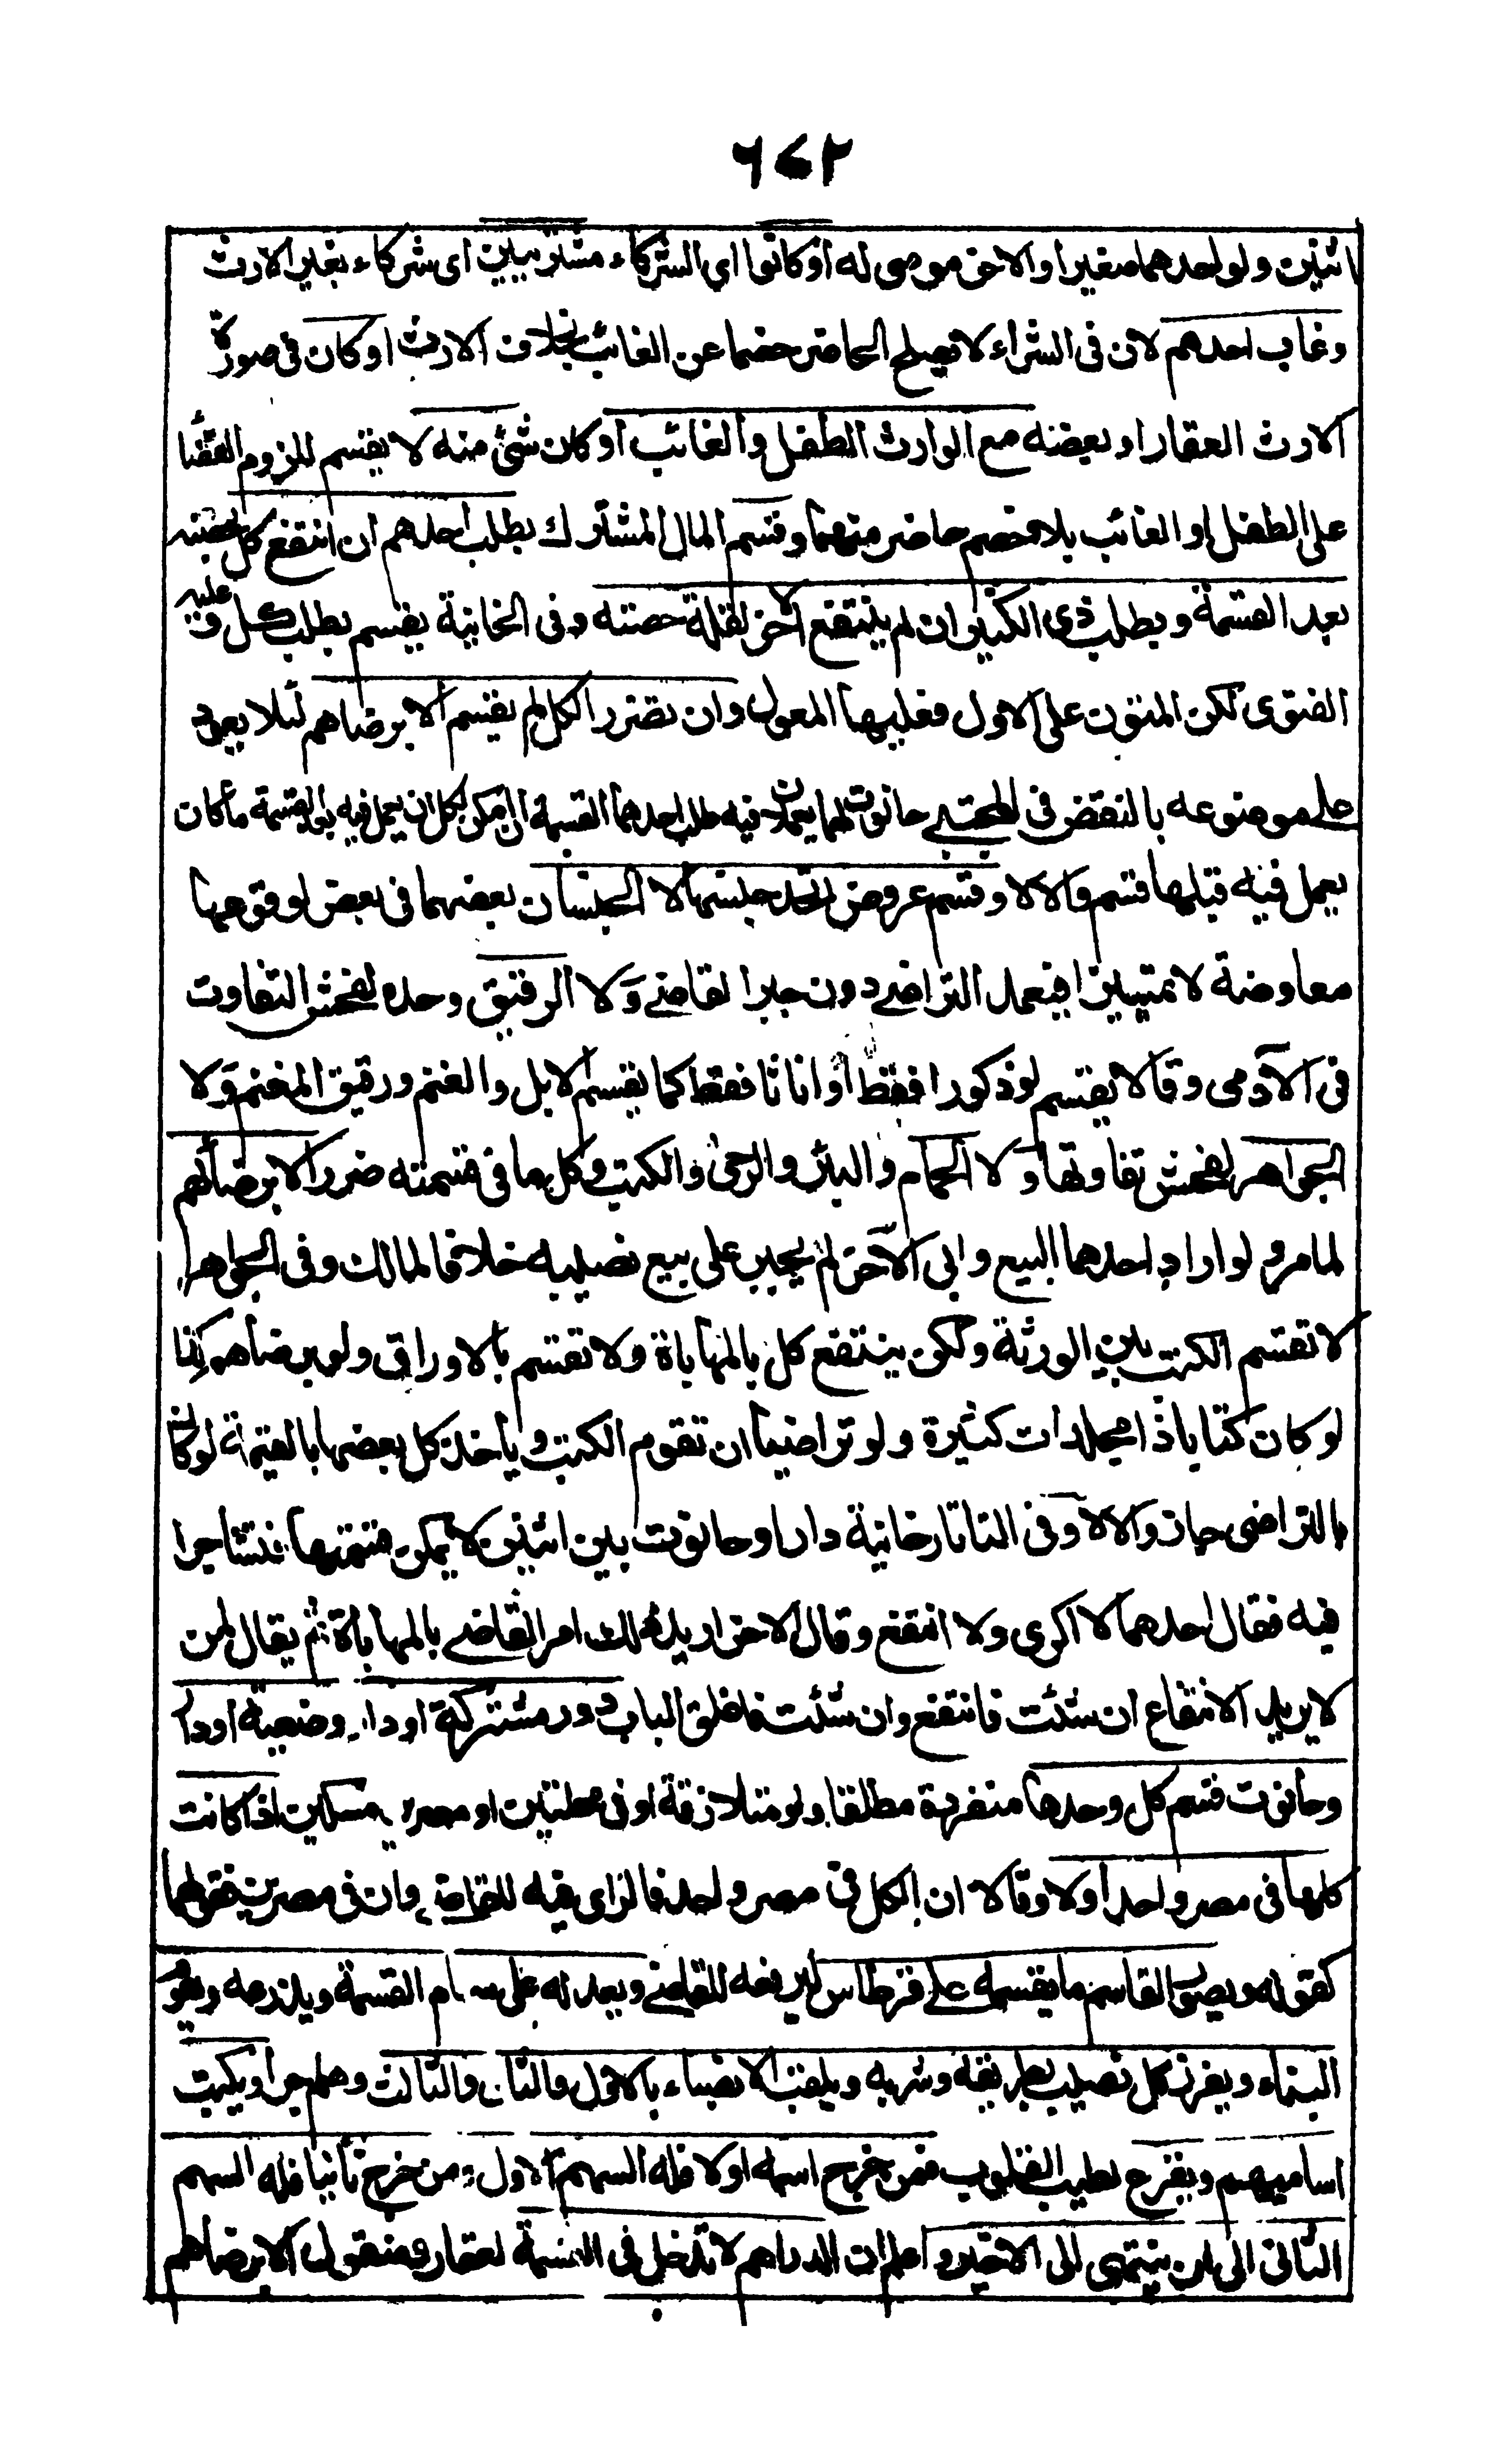 ٦٧٢
اثنين ولو احدهما صغيرا والاخر موصى له او كانوا اى الشركاء مشتريين اى شركاء بغير الارث
وغاب احدهم لان فى الشراء لا يصلح الحاضر خصما عن الغائب بخلاف الارث او كان فى صورة
الارث العقار او بعضه مع الوارث الطفل والغائب او كان شئ منه لا يقسم للزوم القضا
على الطفل او الغائب بلا خصم حاضر منهما وقسم المال المشترك بطلب احدهم ان انتفع كل بحصته
بعد القسمة وبطلب ذى الكثير ان لم ينتفع الاخر لقلة حصته وفى الخانية يقسم بطلب كل وعليه
الفتوى لكن المتون على الاول فعليها المعول وان تضرر الكل لم يقسم الا برضاهم لئلا يعود
على موضوعه بالنقض فى المجتبى حانوت لهما يعملان فيه طلب احدهما القسمة ان امكن لكل ان يعمل فيه بعد القسمة ما كان
يعمل فيه قبلها قسم والا لا وقسم عروض اتحد جنسها لا الجنسان بعضهما فى بعض لوقوعها
معاوضة لا تمييزا فيعمد التراضى دون جبر القاضى ولا الرقيق وحده لفحش التفاوت
فى الآدمى وقالا يقسم لو ذكورا فقط او اناثا فقط كما يقسم الابل والغنم ورقيق المغنم ولا
الجواهر لفحش تفاوتها ولا الحمام والبئر والرحى والكتب وكل ما فى قسمته ضرر الا برضائهم
لما مر ولو اراد احدهما البيع وابى الآخر لم يجبر على بيع نصيبه خلافا لمالك وفى الجواهر
لا تقسم الكتب بين الورثة ولكن ينتفع كل بالمهاياة ولا تقسم بالاوراق ولو برضاهم وكذا
لو كان كتابا ذا مجلدات كثيرة ولو تراضيا ان تقوم الكتب ويأخذ كل بعضها بالقيمة لو كان
بالتراضى جاز والا لا وفى التاتارخانية دار او حانوت بين اثنين لا يمكن قسمتها تشاجرا
فيه فقال احدهما لا اكرى ولا انتفع وقال الاخر اريد ذلك امر القاضى بالمهاياة ثم يقال لمن
لا يريد الانتفاع ان شئت فانتفع وان شئت فاغلق الباب دور مشتركة او دار وضيعة او دار
وحانوت قسم كل وحدها منفردة مطلقا ولو متلازقة او فى محلتين او مصرين مسكين اذا كانت
كلها فى مصر واحد او لا وقالا ان الكل فى مصر واحد فالراى فيه للقاضى وان فى مصرين فقولهما
كقوله ويصور القاسم ما يقسمه على قرطاس ليرفعه للقاضى ويعدله على سهام القسمة ويذرعه ويقوم
البناء ويفرز كل نصيب بطريقه وشربه ويلقب الانصباء بالاول والثانى والثالث وهلم جرا ويكتب
اساميهم ويقرع لطيب القلوب فمن خرج اسمه اولا فله السهم الاول ومن خرج ثانيا فله السهم
الثانى الى ان ينتهى الى الاخير واعلم ان الدراهم لا تدخل فى القسمة لعقار ومنقول الا برضاهم